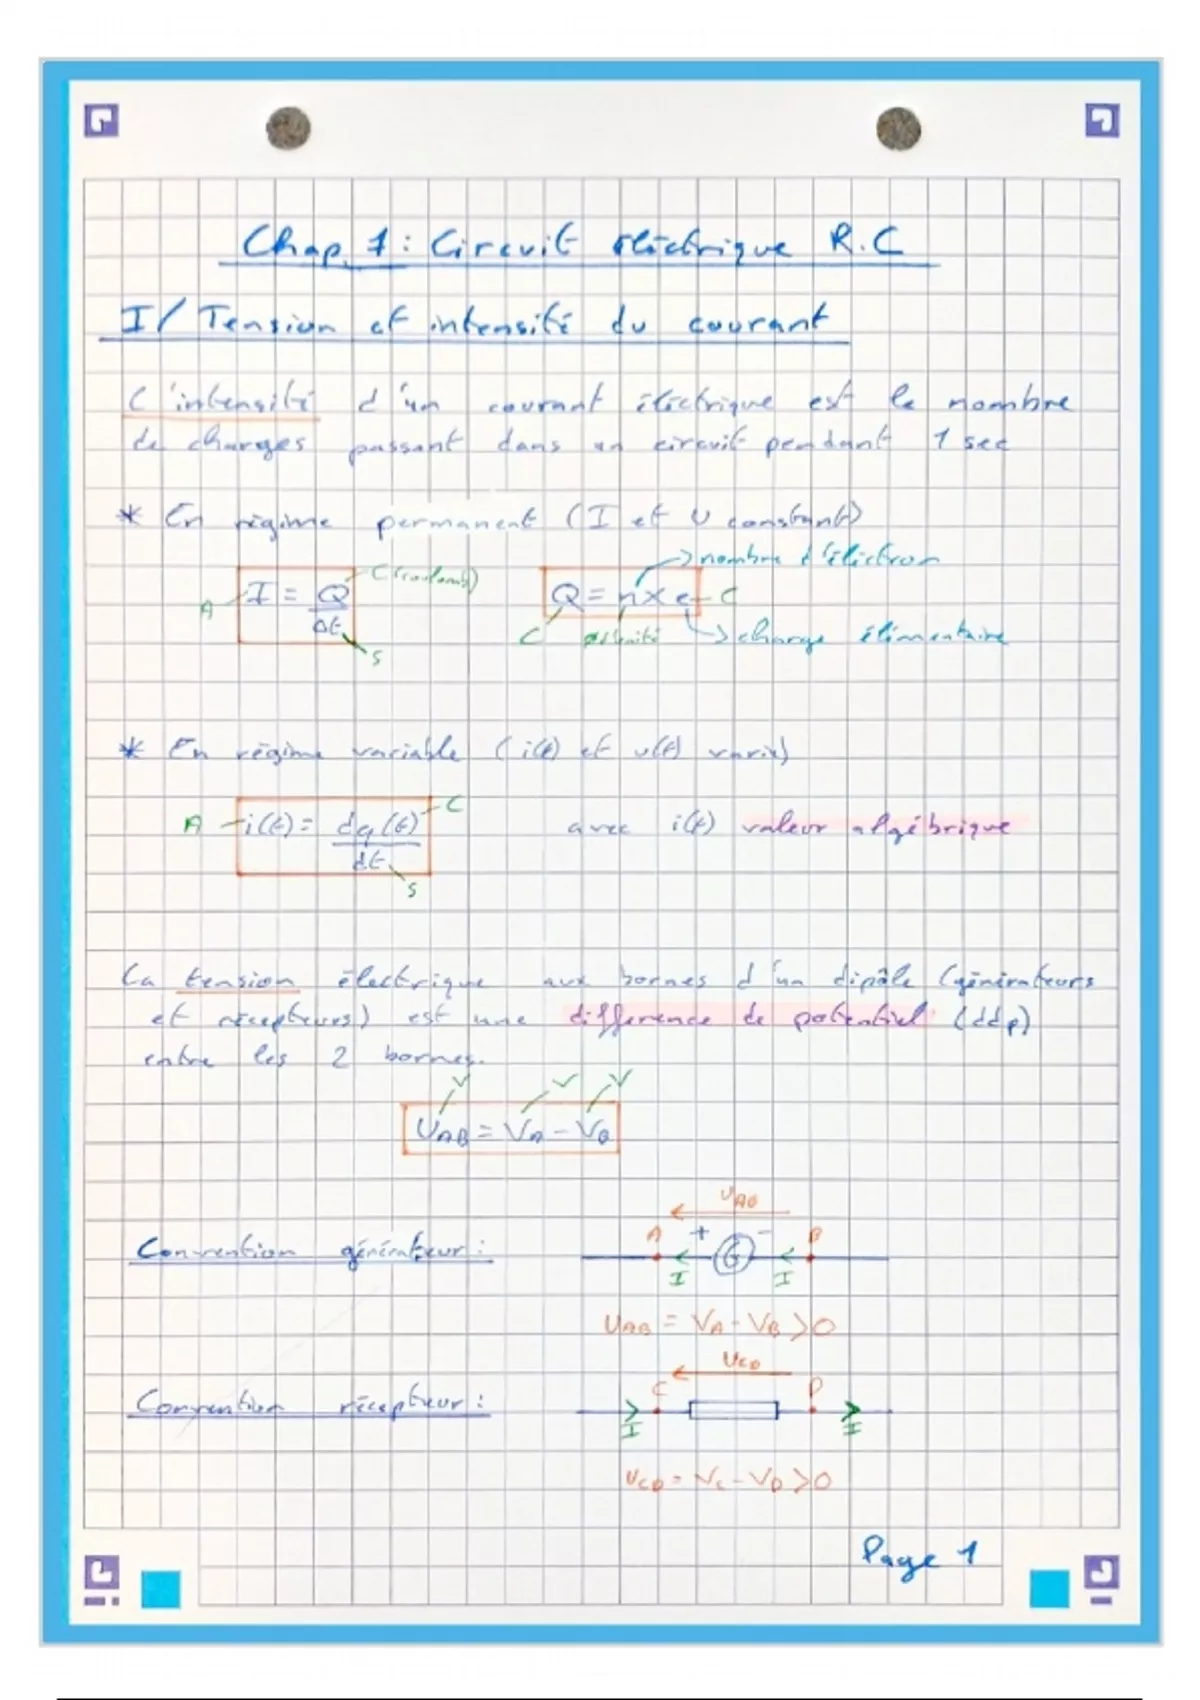 Chap. 1 : Circuit électrique R.C
I/ Tension et intensité du courant
L'intensité d'un courant électrique est le nombre
de charges passant dans un circuit pendant 1 sec
* En régime permanent (I et U constant)
nombre d'électron
C (coulomb)
A I = Q/Δt Q = n x e C
s C charge élémentaire
* En régime variable (i(t) et u(t) varie)
C
A i(t) = dq(t)/dt avec i(t) valeur algébrique
s
La tension électrique aux bornes d'un dipôle (générateurs
et récepteurs) est une différence de potentiel (ddp)
entre les 2 bornes.
V V V
UAB = VA - VB
UAB
A + - B
Convention générateur : G
I I
UAB = VA - VB > 0
UCD
C D
Convention récepteur :
I I
UCD = VC - VD > 0
Page 1